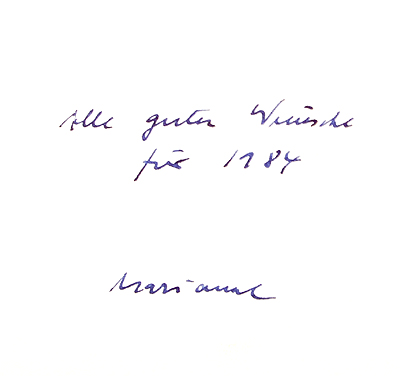 Alle guten Wünsche
für 1984
Marianne